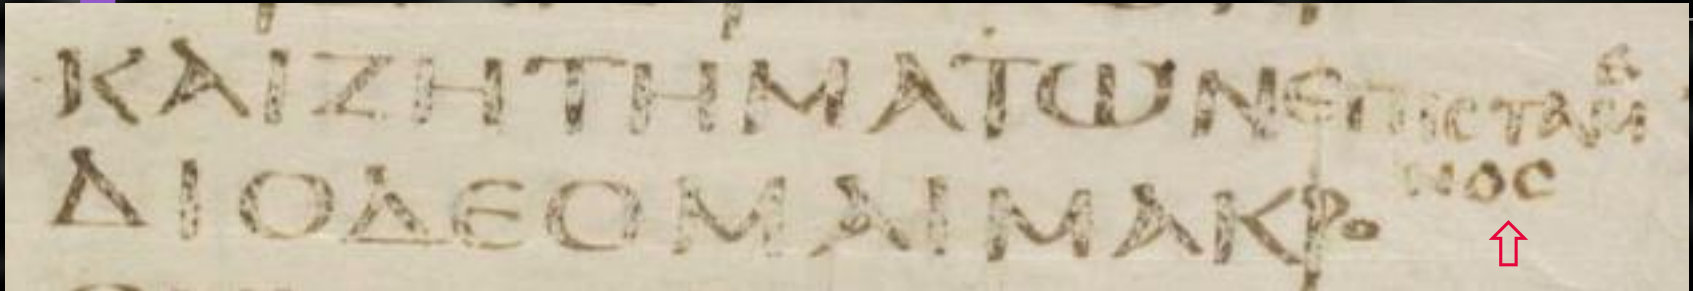 ΚΑΙΖΗΤΗΜΑΤΩΝΕΠΙϹΤΑΜΕ
ΝΟϹ
ΔΙΟΔΕΟΜΑΙΜΑΚΡΟ